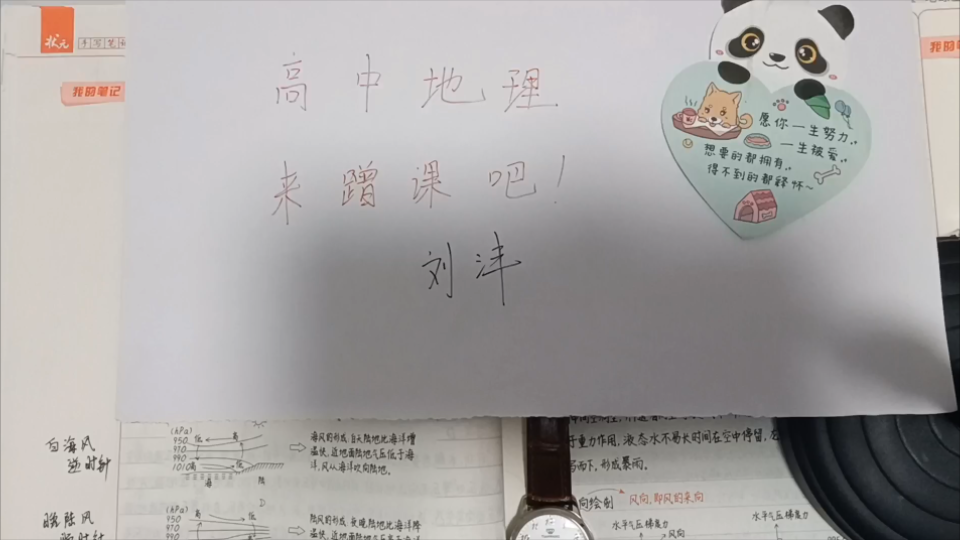 状元
手写笔记
我的笔记
高中地理
来蹭课吧！
刘沣
愿你一生努力
一生被爱
想要的都拥有
得不到的都释怀~
我的笔记
白海风
逆时针
(hPa)
950
970
990
1010
高
低
低
海
陆
海风的形成 白天陆地比海洋增
温快，近地面陆地气压低于海
洋，风从海洋吹向陆地。
D
晚陆风
顺时针
(hPa)
950
970
990
高
低
陆风的形成 夜晚陆地比海洋降
于重力作用，液态水不易长时间在空中停留，
而下，形成暴雨。
向绘制
风向，即风的来向
水平气压梯度力
风向
水平气压梯度力